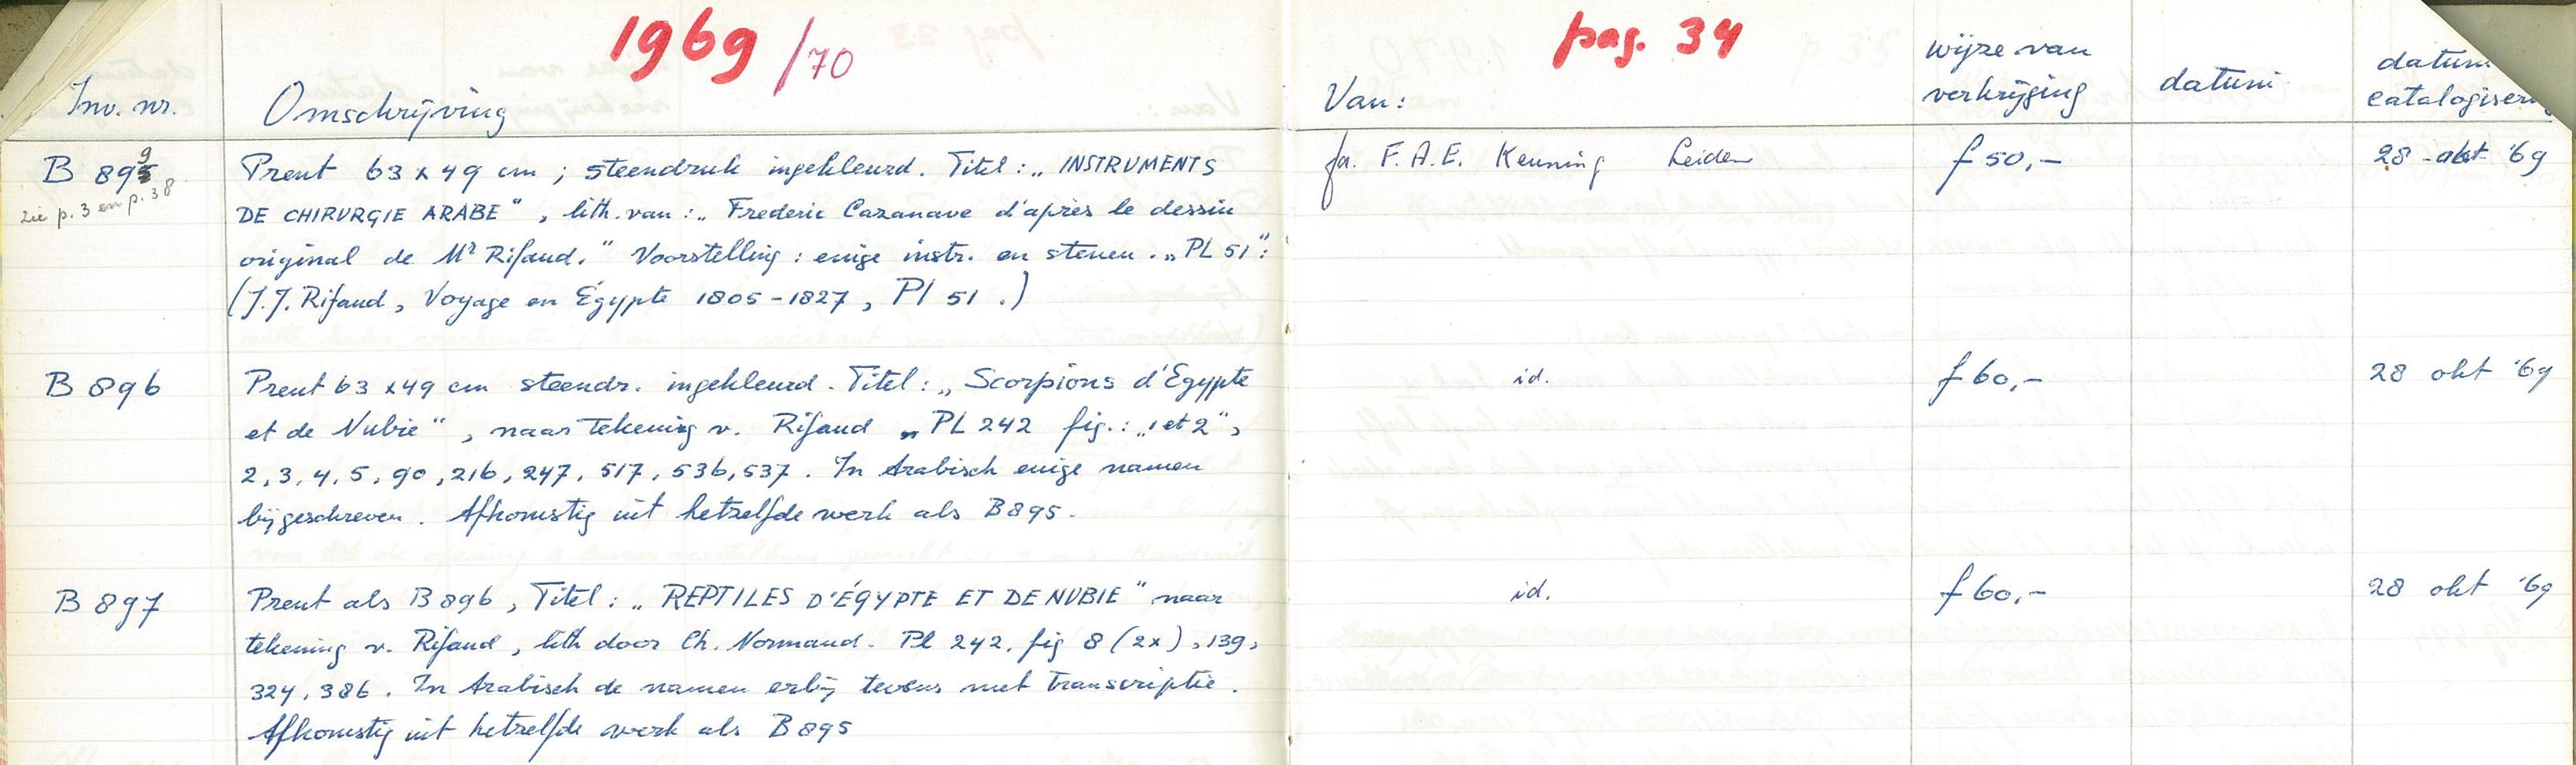 1969 /70
pag. 34
Inv. nr. Omschrijving Van: wijze van verkrijging datum datum catalogiser
B 895 9 Prent 63 x 49 cm ; steendruk ingekleurd. Titel : „ INSTRUMENTS fa. F.A.E. Keuning Leiden f 50,- 28 - okt - '69
zie p. 3 en p. 38
DE CHIRURGIE ARABE " , lith. van : „ Frederic Cazanave d'après le dessin
original de Mr Rifaud. " Voorstelling : enige instr. en stenen . „ PL 51 " :
(J.J. Rifaud , Voyage en Égypte 1805-1827 , Pl 51 .)
B 896 Prent 63 x 49 cm steendr. ingekleurd . Titel : „ Scorpions d'Egypte id. f 60,- 28 okt '69
et de Nubie " , naar tekening v. Rifaud „ PL 242 fig. : „1 et 2",
2, 3, 4, 5, 90, 216, 247, 517, 536, 537 . In Arabisch enige namen
bijgeschreven . Afkomstig uit hetzelfde werk als B895 .
B 897 Prent als B 896 , Titel : „ REPTILES D'ÉGYPTE ET DE NUBIE " naar id. f 60,- 28 okt '69
tekening v. Rifaud , lith door Ch. Normand . Pl 242. fig 8 (2x) , 139,
324, 386 . In Arabisch de namen erbij tevens met transcriptie .
Afkomstig uit hetzelfde werk als B 895